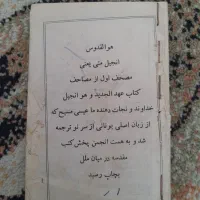 هو القدوس
انجیل متی یعنی
مصحف اول از مصاحف
کتاب عهد الجدید و هو انجیل
خداوند و نجات دهنده ما عیسی مسیح که
از زبان اصلی یونانی از سر نو ترجمه
شد و به همت انجمن پخش کتب
مقدسه در میان ملل
بچاپ رسید